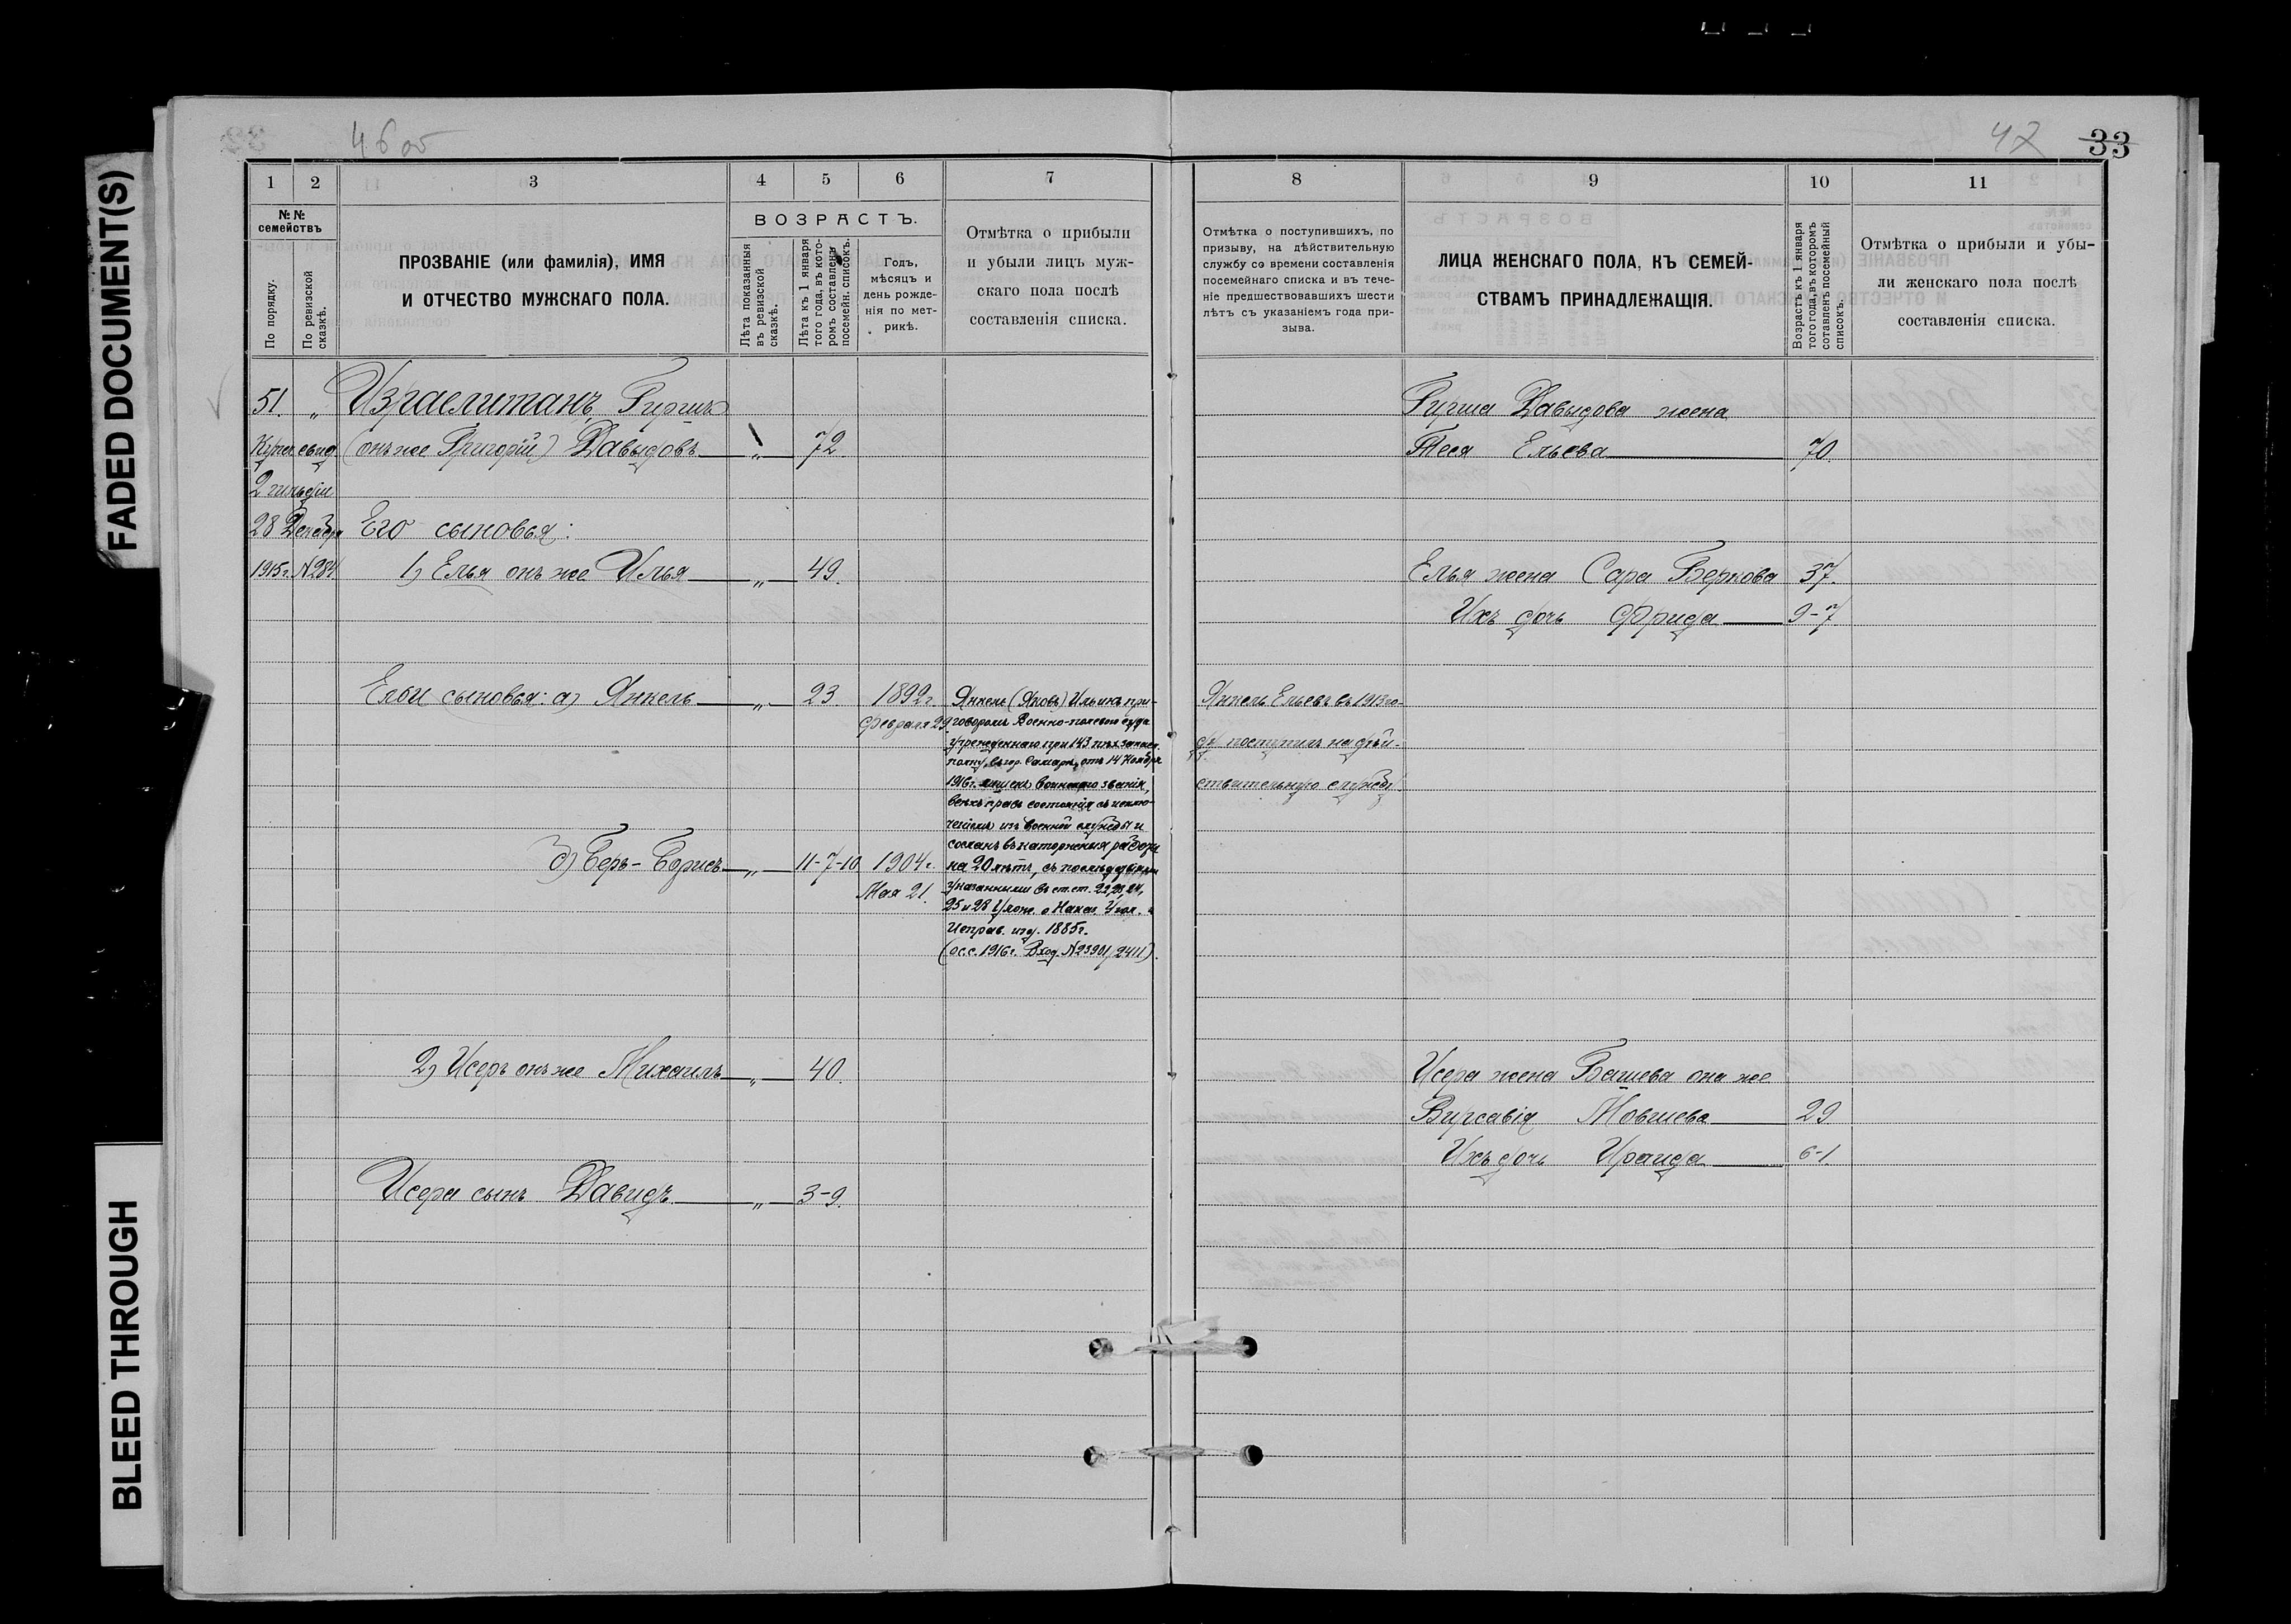 FADED DOCUMENT(S)
BLEED THROUGH
47
33
1
2
3
4
5
6
7
№ №
семействъ
По порядку.
По ревизской
сказкѣ.
ПРОЗВАНІЕ (или фамилія), ИМЯ
И ОТЧЕСТВО МУЖСКАГО ПОЛА.
ВОЗРАСТЪ.
Лѣта показанныя
въ ревизской
сказкѣ.
Лѣта къ 1 января
того года, въ кото-
ромъ составленъ
посемейн. списокъ.
Годъ,
мѣсяцъ и
день рожде-
нія по мет-
рикѣ.
Отмѣтка о прибыли
и убыли лицъ муж-
скаго пола послѣ
составленія списка.
51. „ Израелитанъ, Гиршъ
Купеч. свид. (онъ же Григорій) Давыдовъ „ 72.
2 гильдіи
28 Декабря Его сыновья:
1915г. №284 1) Елья онъ же Илья „ 49.
Ельи сыновья: а) Янкель „ 23. 1892г.
февраля 29.
Янкель (Яковъ) Ильинъ при-
говоромъ Военно-полевого суда
учрежденнаго при 143 пѣх. запасн.
полку, въ гор. Самарѣ, отъ 14 Ноября
1916г. лишенъ воинскаго званія,
всѣхъ правъ состоянія съ исклю-
ченіемъ изъ военной службы и
сосланъ въ каторжныя работы
на 20 лѣтъ, съ послѣдствіями
указанными въ ст.ст. 22, 23, 24,
25 и 28 Улож. о Наказ. Угол. и
Исправ. изд. 1885г.
(ос.с. 1916г. Вход. №23901/2411).
б) Беръ-Борисъ „ 11-7-10 1904г.
Мая 21.
2) Исеръ онъ же Михаилъ „ 40.
Исера сынъ Давидъ „ 3-9.
8
9
10
11
Отмѣтка о поступившихъ, по
призыву, на дѣйствительную
службу со времени составленія
посемейнаго списка и въ тече-
ніе предшествовавшихъ шести
лѣтъ съ указаніемъ года при-
зыва.
ЛИЦА ЖЕНСКАГО ПОЛА, КЪ СЕМЕЙ-
СТВАМЪ ПРИНАДЛЕЖАЩІЯ.
Возрастъ къ 1 января
того года, въ которомъ
составленъ посемейный
списокъ.
Отмѣтка о прибыли и убы-
ли женскаго пола послѣ
составленія списка.
Гирша Давыдова жена
Тися Ельева 70.
Елья жена Сара Беркова 37.
Ихъ дочь Фрида 9-7
Янкель Ельевъ въ 1913 го-
ду поступилъ на дѣй-
ствительную службу.
Исера жена Башева она же
Вирсавія Мовшева 29
Ихъ дочь Ираида 6-1.